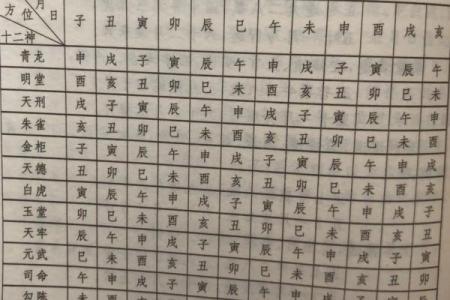 方位 月 日 子 丑 寅 卯 辰 巳 午 未 申 酉 戌 亥
十二神
青龙 申 戌 子 寅 辰 午 申 戌 子 寅 辰 午
明堂 酉 亥 丑 卯 巳 未 酉 亥 丑 卯 巳 未
天刑 戌 子 寅 辰 午 申 戌 子 寅 辰 午 申
朱雀 亥 丑 卯 巳 未 酉 亥 丑 卯 巳 未 酉
金柜 子 寅 辰 午 申 戌 子 寅 辰 午 申 戌
天德 丑 卯 巳 未 酉 亥 丑 卯 巳 未 酉 亥
白虎 寅 辰 午 申 戌 子 寅 辰 午 申 戌 子
玉堂 卯 巳 未 酉 亥 丑 卯 巳 未 酉 亥 丑
天牢 辰 午 申 戌 子 寅 辰 午 申 戌 子 寅
元武 巳 未 酉 亥 丑 卯 巳 未 酉 亥 丑 卯
司命 午 申 戌 子 寅 辰 午 申 戌 子 寅 辰
勾陈